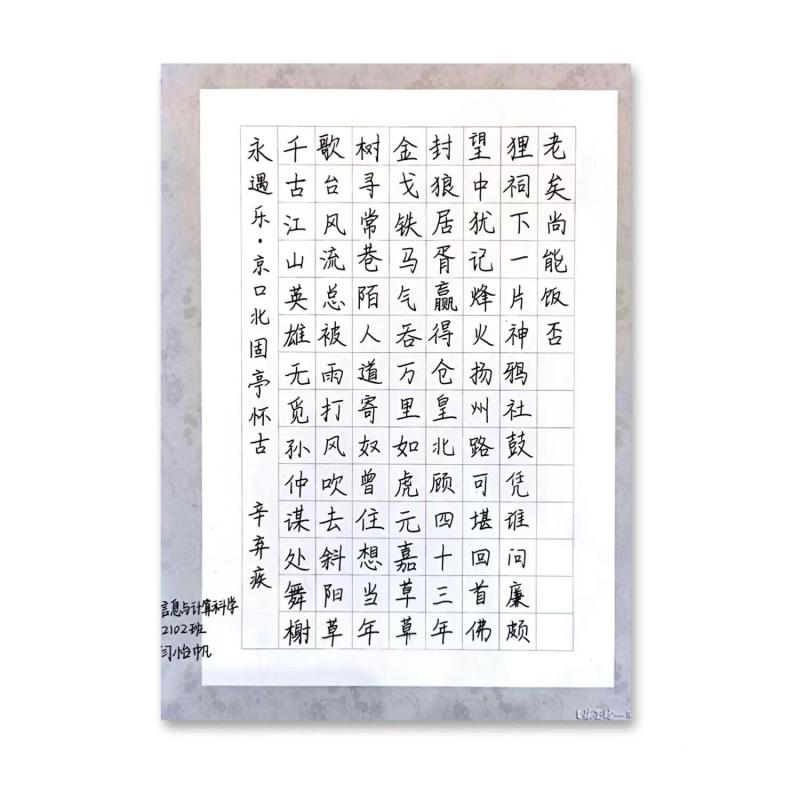 永遇乐·京口北固亭怀古 辛弃疾
千古江山英雄无觅孙仲谋处舞榭
歌台风流总被雨打风吹去斜阳草
树寻常巷陌人道寄奴曾住想当年
金戈铁马气吞万里如虎元嘉草草
封狼居胥赢得仓皇北顾四十三年
望中犹记烽火扬州路可堪回首佛
狸祠下一片神鸦社鼓凭谁问廉颇
老矣尚能饭否
信息与计算科学
2102班
闫怡帆